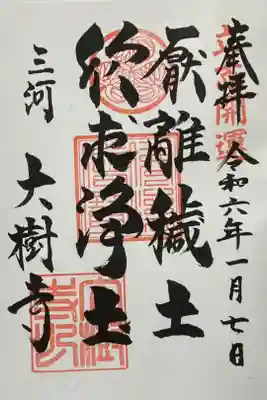 奉拝 令和六年一月七日
開運
厭離穢土
欣求浄土
三河 大樹寺